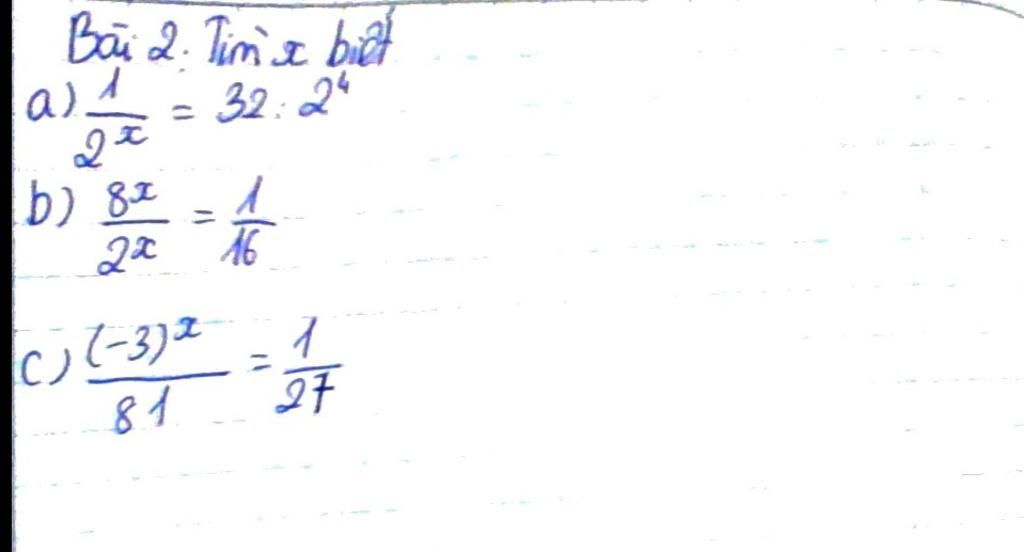 Bài 2. Tìm x biết
a) 1/2^x = 32 : 2^4
b) 8^x/2^x = 1/16
c) (-3)^x/81 = 1/27